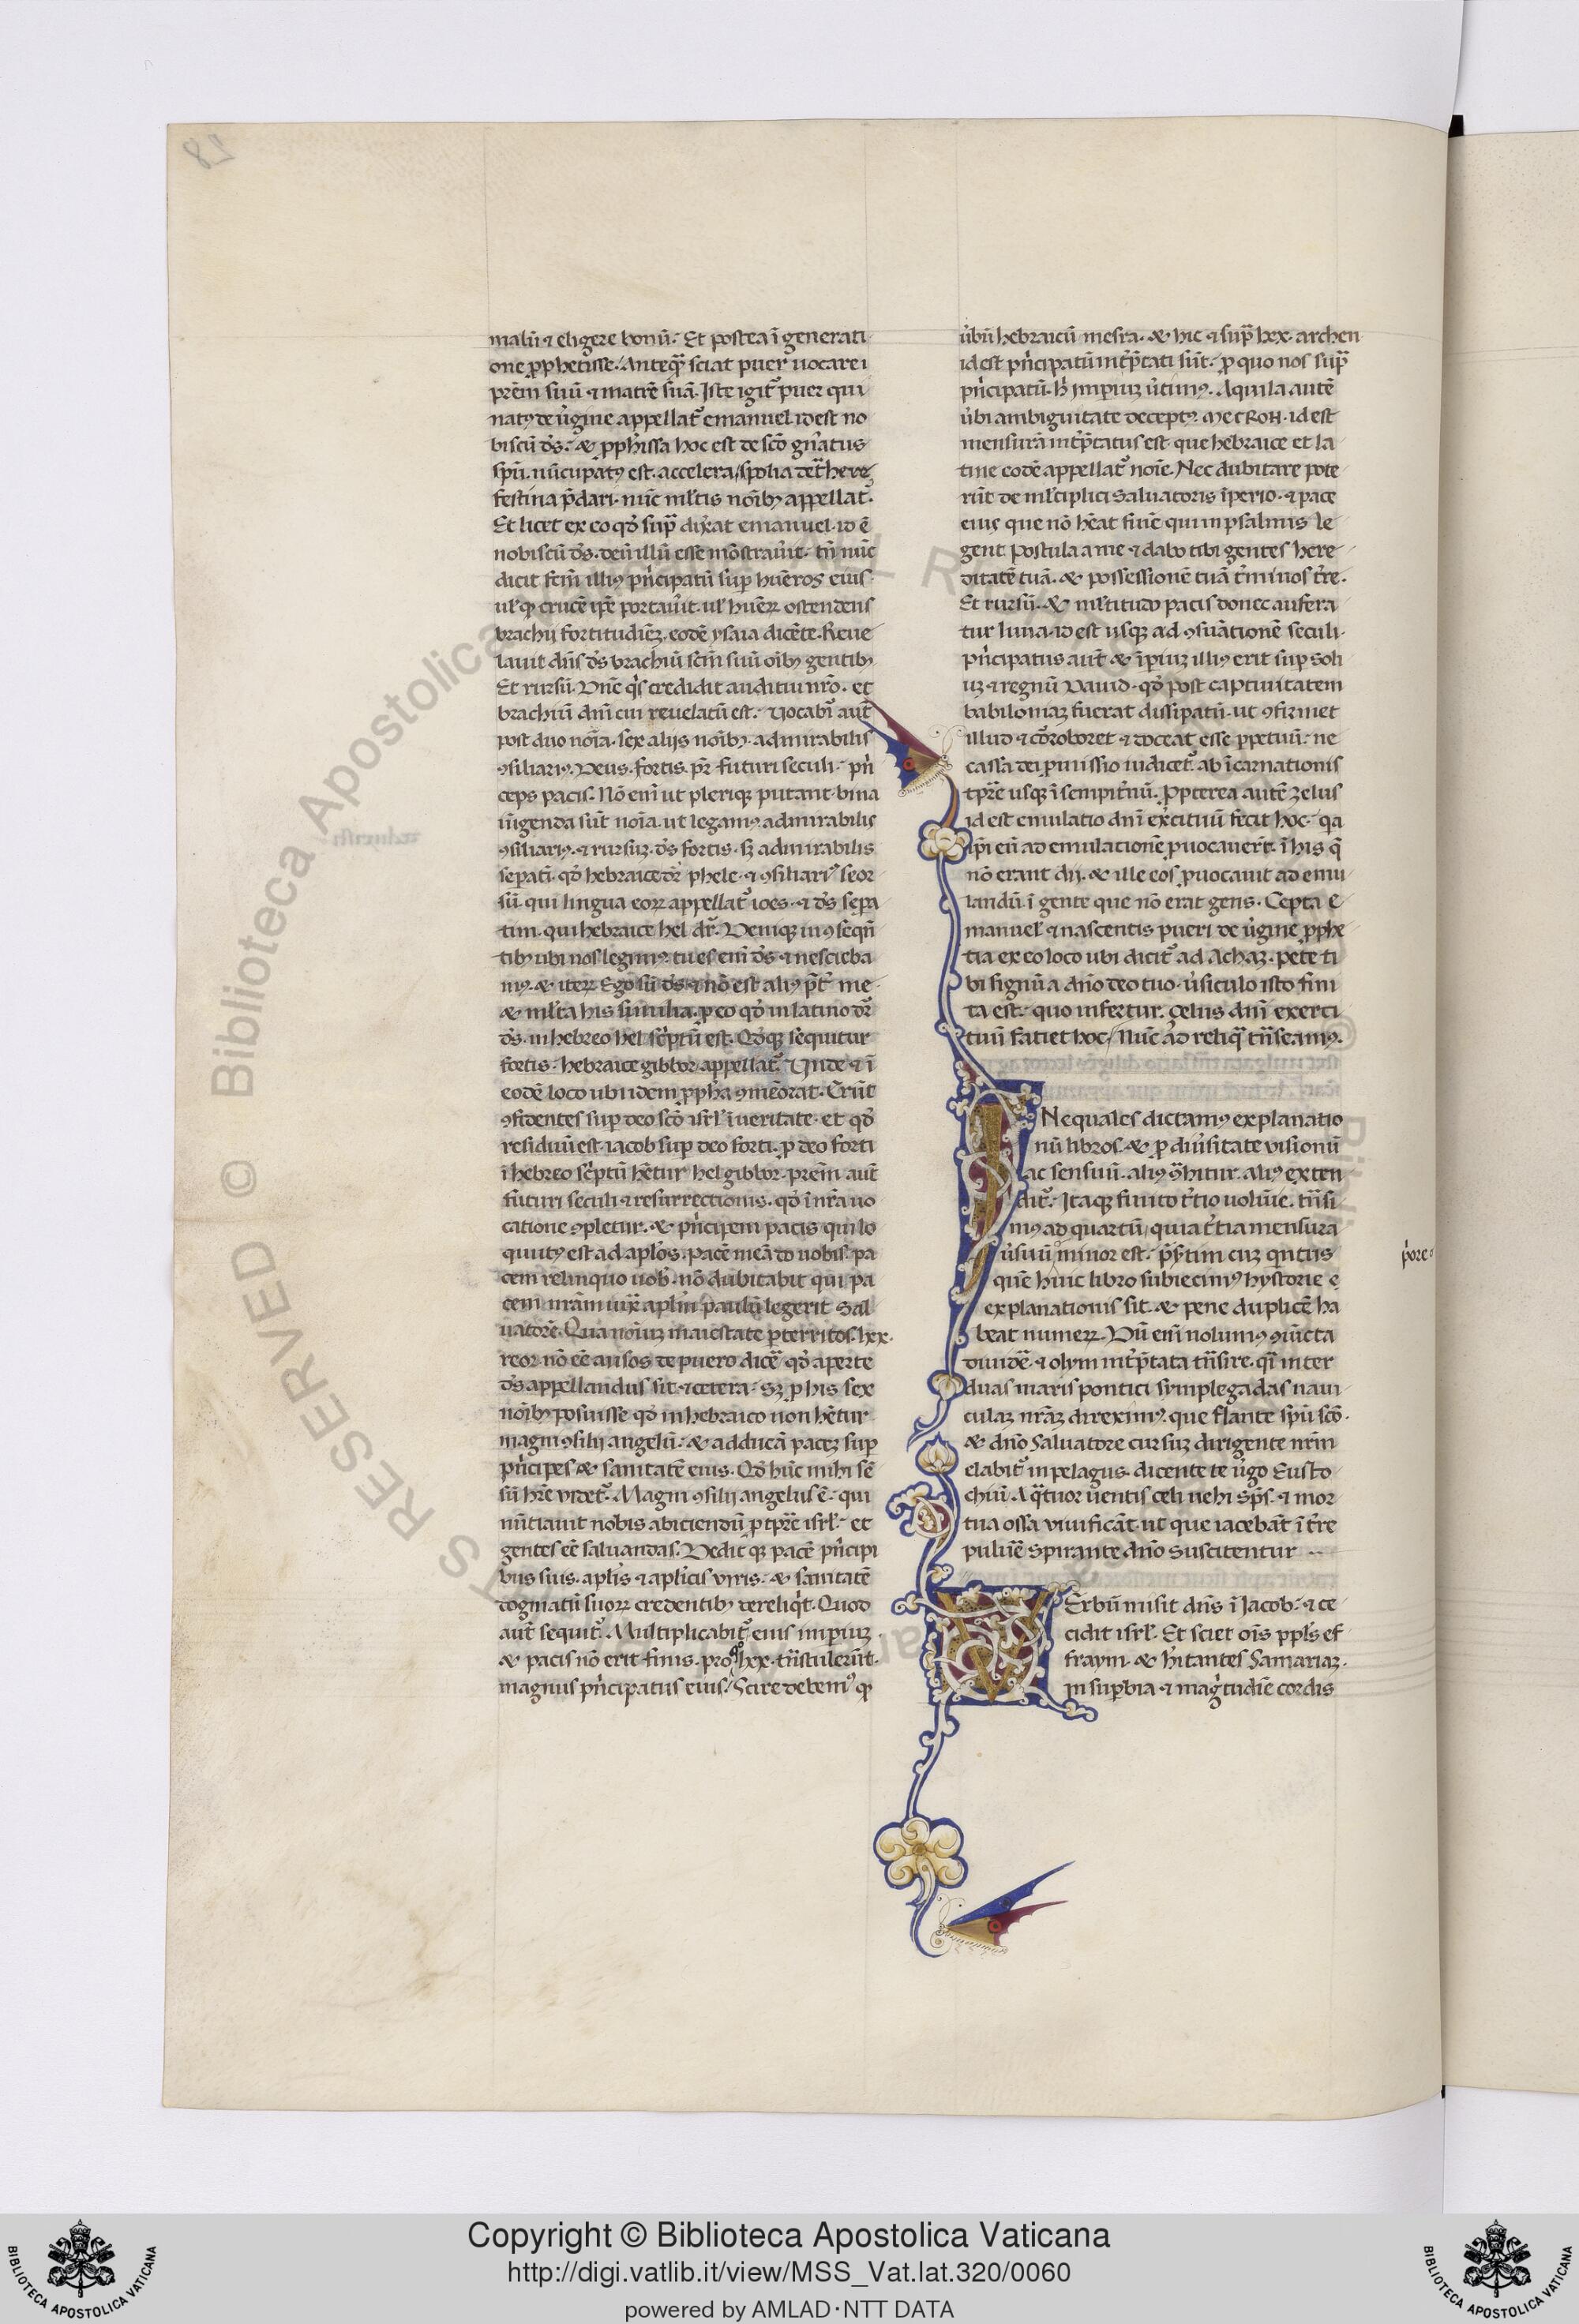 malū ⁊ eligere bonū: Et postea ī generati
one ꝓphetisse. Anteq̄ sciat puer uocare
prēm suū ⁊ matrē suā. Iste igit᷑ puer qui
natꝰ de u̓gine appellat᷑ emanuel. id est no
biscū dš: & ꝓph̓issa hoc est de scō gn̄atus
spū. nūcupatꝰ est. accelera / spolia det̄here
festina p̄dari. nūc ml̓tis noīb; appellat᷑.
Et licet ex eo qđ sup̄ dixͣat emanuel. id ē
nobiscū dš. deū illū esse mōstrau̓it. tn̄ nūc
dicit fcm̄ illiꝰ pn̓cipatū suꝑ hūeros eius
ul̓ ꝙ crucē ip̄e portau̓it. ul̓ huēꝝ ostendens
brachij fortitudīez. eodē ysaia dicēte. Reue
lauit dn̄s dš brachiū scm̄ suū oīb; gentib;
Et rursū. Dn̄e qi̓s credidit auditui nr̄o. et
brachiū dn̄i cui reuelatū est: Vocabi᷑ aut̄
post duo noīa. sex alijs noīb; admirabilis
ꝯsiliariꝰ. Deus. fortis. pr̄ futuri seculi: pn̓
ceps pacis. Nō enī ut pleriqꝫ putant. bina
iūgenda sūt noīa. ut legamꝰ admirabilis
ꝯsiliariꝰ. ⁊ rursuz. dš fortis. sꝫ admirabilis
sepati᷑. qđ hebraice dr̄ phele. ⁊ ꝯsiliariꝰ seor
sū. qui lingua eoꝝ appellat᷑ ioes. ⁊ dš sepa
tim. qui hebraice hel dr̄. Deniqꝫ in ꝯseqn̄
tib; ubi nos legimꝰ. tu es enī dš ⁊ nescieba
mꝰ. & iteꝝ Ego sū dš ⁊ nō est aliꝰ p̄t̓ me
& ml̓ta his similia. ꝓ eo qđ in latino dr̄
dš. in hebreo hel sc̓ptū est. Qđqꝫ sequitur
fortis. hebraice gibbor appellat᷑. Vnde ⁊ ī
eodē loco ubi idem ꝓph̓a ꝯmēorat. Erūt
ꝯfidentes suꝑ deo scō isrl̓ ī ueritate. et qđ
residuū est. iacob suꝑ deo forti. ꝓ deo forti
ī hebreo sc̓ptū hētur hel gibbor. prēm aut̄
futuri seculi ⁊ resurrectionis. qđ ī nr̄a uo
catione ꝯpletur. & pn̓cipem pacis qui lo
quutꝰ est ad apl̓os. pacē meā do nobis. pa
cem relinquo uob̓. nō dubitabit qui pa
cem nr̄am iux̄ apl̓m paulū legerit Sal
uatorē. Qua noīuz maiestate ꝑterritos. lxx.
reor. nō eē ausos de puero dicē qđ aperte
dš appellandus sit. ⁊ cetera. Sꝫ ꝓ his sex
noīb; posuisse qđ in hebraico non hētur
magni ꝯsilij angelū: & adducā pacez suꝑ
pn̓cipes & sanitatē eius. Qđ hūc mihi sē
sū hr̄e uidet᷑. Magni ꝯsilij angelus ē. qui
nūtiauit nobis abiciendū ꝓ tpr̄e isrl̓: et
gentes eē saluandas. Dedit qꝫ pacē pn̓cipi
bus suis. apl̓is ⁊ apl̓icis uiris: & sanitatē
dogmatū suoꝝ credentib; dereliqi̓t. Quod
aut̄ sequit᷑. Multiplicabit᷑ eius imperiuz
& pacis nō erit finis. pro qͦ lxx. tn̄stulerūt.
magnus pn̓cipatus eius. / Scire debemꝰ ꝙ
u̓bū hebraicū mesra. & hic ⁊ sup̄ lxx. archen
id est pn̓cipatū int̓p̄tati sūt. ꝓ quo nos sup̄
pn̓cipatū. h̓ imperiuz u̓timꝰ. Aquila autē
u̓bi ambiguitate deceptꝰ. ΜΕΤΡΟΝ. id est
mensurā int̓p̄tatus est. que hebraice et la
tine eodē appellat᷑ noīe. Nec dubitare pote
rūt de ml̓tiplici Saluatoris īperio. ⁊ pace
eiꝰ que nō hēat finē qui in psalmis le
gent Postula a me ⁊ dabo tibi gentes here
ditatē tuā. & possessionē tuā t̓minos t̓re.
Et rursū. & ml̓titudo pacis donec aufera
tur luna. id est usqꝫ ad ꝯsūationē seculi.
pn̓cipatus aut̄ & īperiuz illiꝰ erit suꝑ Soli
uz. ⁊ regnū Dauid. qđ post captiuitatem
babiloniaz fuerat dissipatū. ut ꝯfirmet
illud ⁊ cōroboret ⁊ doceat esse ꝑpetuū: ne
cassa dei ꝓmissio iudicet᷑. ab īcarnationis
tpr̄e usqꝫ ī sempit̓nū. Propterea autē zelus
id est emulatio dn̄i exc̓ituū fecit hoc: qa
ip̄i eū ad emulationē ꝓuocauer̄t. ī his q̄
nō erant dij. & ille eos ꝓuocauit ad emu
landū. ī gente que nō erat gens. Cepta e
manuel ⁊ nascentis pueri de u̓gine ꝓphe
tia ex eo loco ubi dicit᷑ ad Achaz. pete ti
bi signū a dn̄o deo tuo. u̓siculo isto fini
ta est: quo infertur. Celus dn̄i exerci
tuū faciet hoc / Nūc ad reliq̄ tn̄seamꝰ.
INequales dictamꝰ explanatio
nū libros. & ꝓ diu̓sitate uisionū
ac sensuū. aliꝰ ꝯtͣhitur. aliꝰ exten
dit᷑. Itaqꝫ finito t̓tio uolūie. tn̄si
mꝰ ad quartū, quia t̓tia mensura
u̓suū minor est. p̄s̓tim cuz qn̓tus
quē huic libro subiecimꝰ hystorie ę
explanationis sit. & pene duplicē ha
beat numeꝝ. Dū enī nolumꝰ ꝯiūcta
diuidē̄. ⁊ olym int̓p̄tata tn̄sire. qi̓ inter
duas maris pontici symplegadas naui
culaz nr̄az direximꝰ. que flante spū scō.
& dn̄o Saluatore cursuz dirigente nr̄m
elabit᷑ in pelagus. dicente te u̓go Eusto
chiū. A qͣtuor uentis celi uehi sps̄. ⁊ mor
tua ossa uiuificāt. ut que iacebāt ī t̓re
puluē̄ Spirante dn̄o Suscitentur
VErbū misit dn̄s ī Jacob: ⁊ ce
cidit isrl̓. Et sciet oīs ppl̓s ef
fraym. & h̓itantes Samariaz.
In suꝑbia ⁊ mag̓tudīe cordis
Copyright © Biblioteca Apostolica Vaticana
http://digi.vatlib.it/view/MSS_Vat.lat.320/0060
powered by AMLAD·NTT DATA
BIBLIOTECA APOSTOLICA VATICANA
BIBLIOTECA APOSTOLICA VATICANA